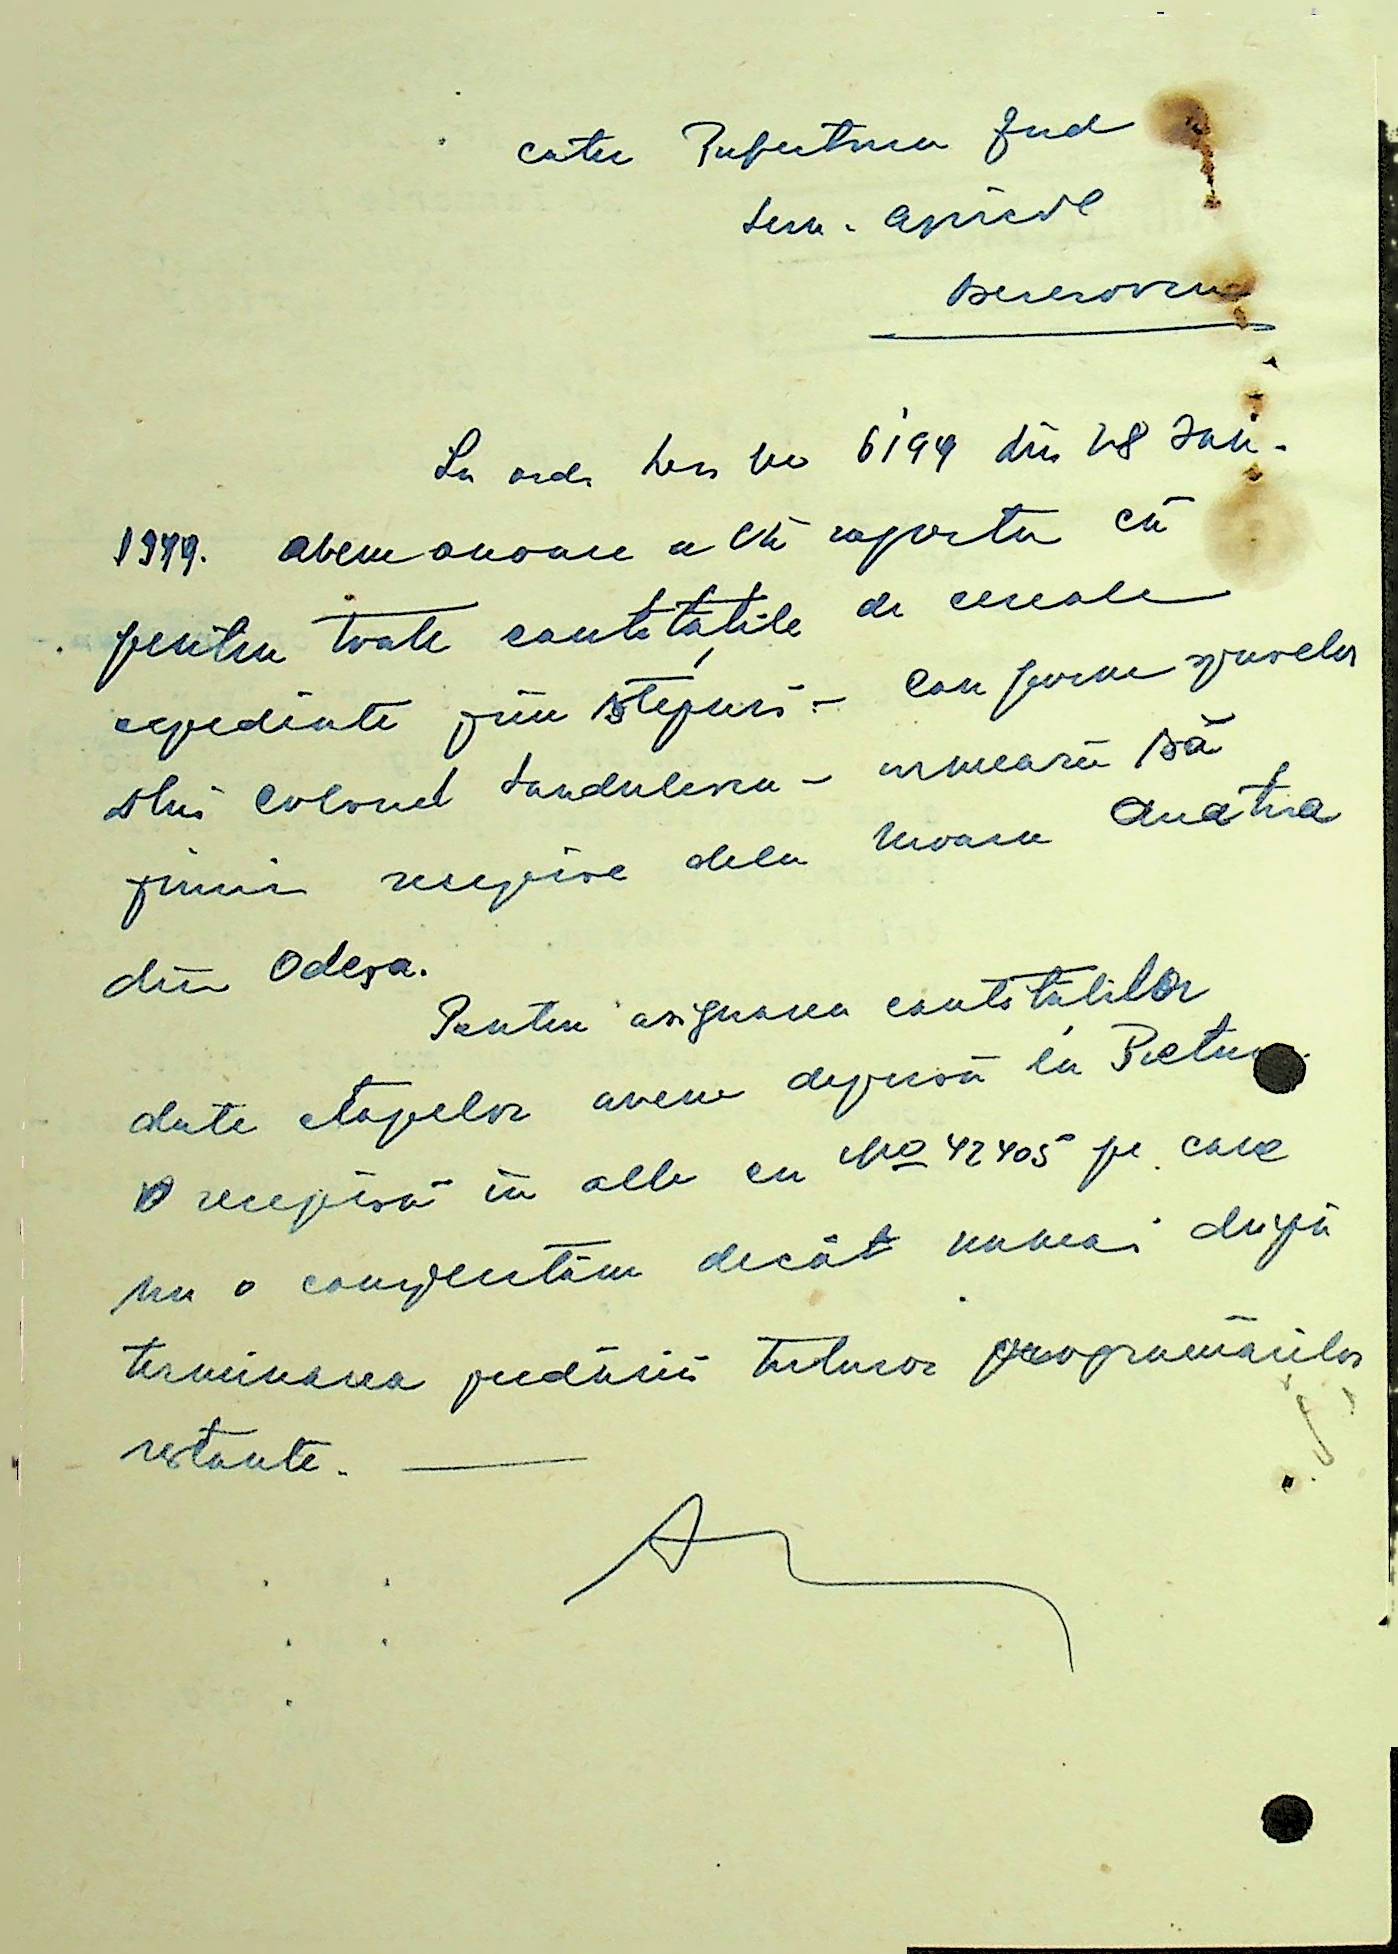 catre Prefectura Jud
Serv. Agricol
Berezovca
La ord. Nr. 6194 din 28 Ian.
1944. avem onoare a Vă raporta că
pentru toate cantitățile de cereale
expediate prin Stepuri - conform spuselor
Dlui Colonel Sandulescu - urmează să
primim recepise dela moara Anatra
din Odesa.
Pentru asignarea cantităților
date etapelor avem depusă la Pretura
O recepisă în alb cu No 42405 pe care
nu o completăm decât numai după
terminarea predării tuturor programărilor
restante.